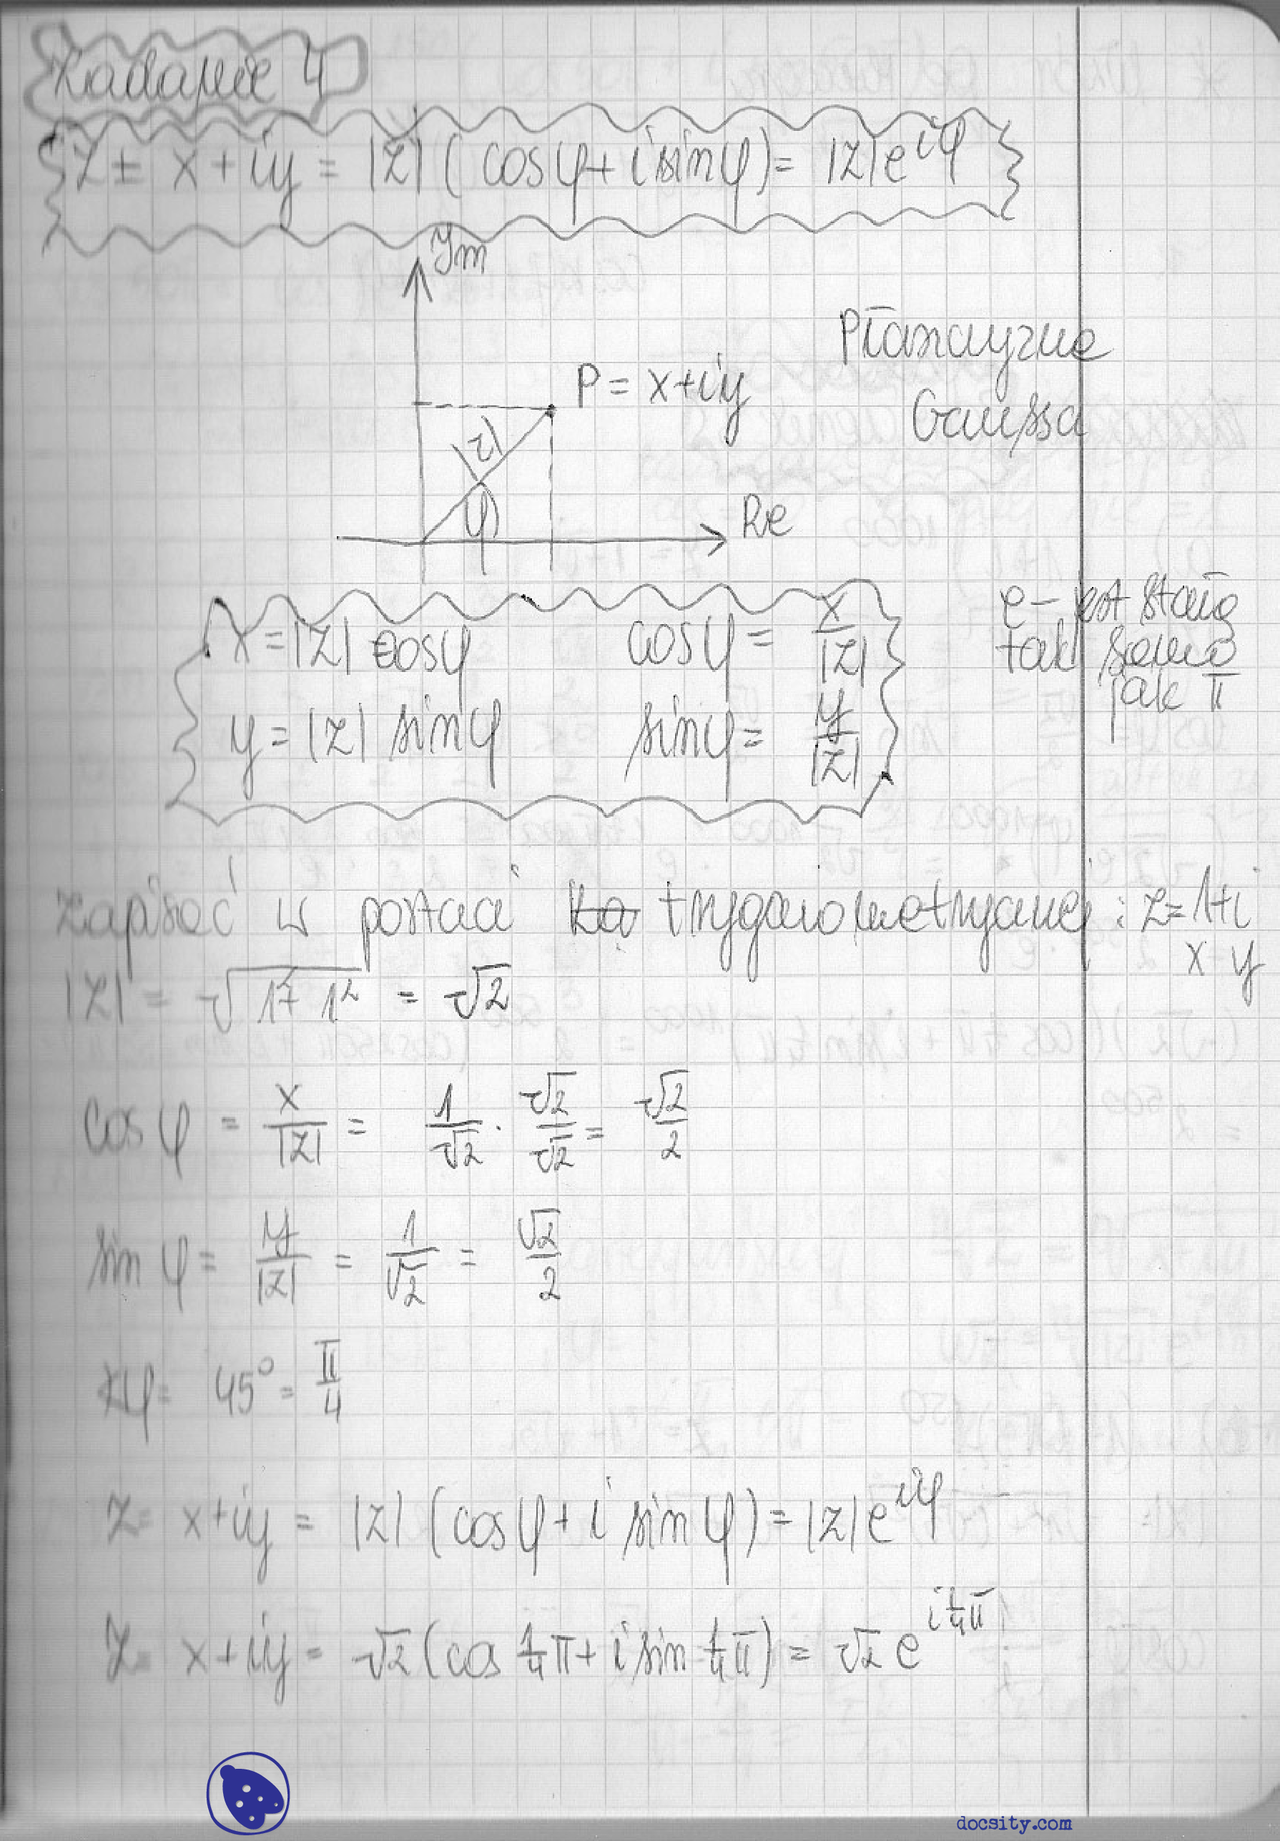 Zadanie 4
Z = x + iy = |Z| ( cosφ + i sinφ) = |Z| e^{iφ}
Ym
P = x + iy
|Z|
φ
Re
Płaszczyzna
Gaussa
x = |Z| cosφ cosφ = x/|Z|
y = |Z| sinφ sinφ = y/|Z|
e – jest stałą
tak samo
jak π
Zapisać w postaci trygonometrycznej : z = 1+i
x y
|Z| = √(1² + 1²) = √2
cos φ = x/|Z| = 1/√2 · √2/√2 = √2/2
sin φ = y/|Z| = 1/√2 = √2/2
∢φ = 45° = π/4
Z = x + iy = |Z| (cosφ + i sin φ) = |Z| e^{iφ}
Z = x + iy = √2 (cos 1/4 π + i sin 1/4 π) = √2 e^{i 1/4 π}
docsity.com